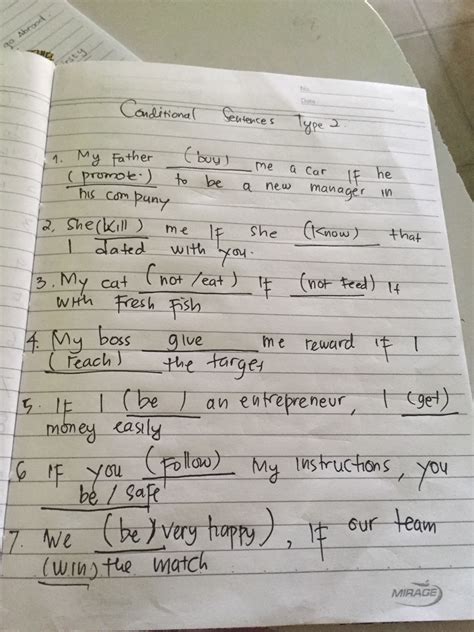 go Abroad
No.
Date
Conditional Sentences Type 2.
1. My Father (buy) me a car If he
(promote) to be a new manager in
his company
2. She (kill) me If she (know) that
I dated with you.
3. My cat (not /eat) If (not feed) It
with Fresh Fish
4. My boss give me reward if I
(reach) the target
5. If I (be) an entrepreneur, I (get)
money easily
6 If you (Follow) My Instructions, you
be / safe
7. We (be) very happy), If our team
(win) the match
MIRAGE